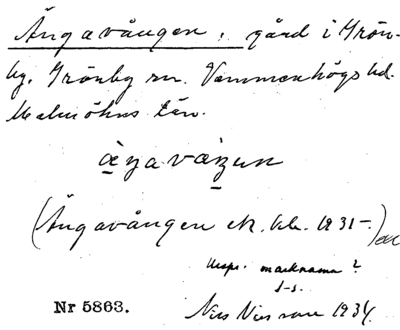 Ängavången, gård i Grön-
by. Grönby sn. Vemmenhögs hd.
Malmöhus län.
(Ängavången ek. kb. 1931-.)
Urspr. marknamn?
J-s.
Nr 5863.
Nils Nilsson 1934.